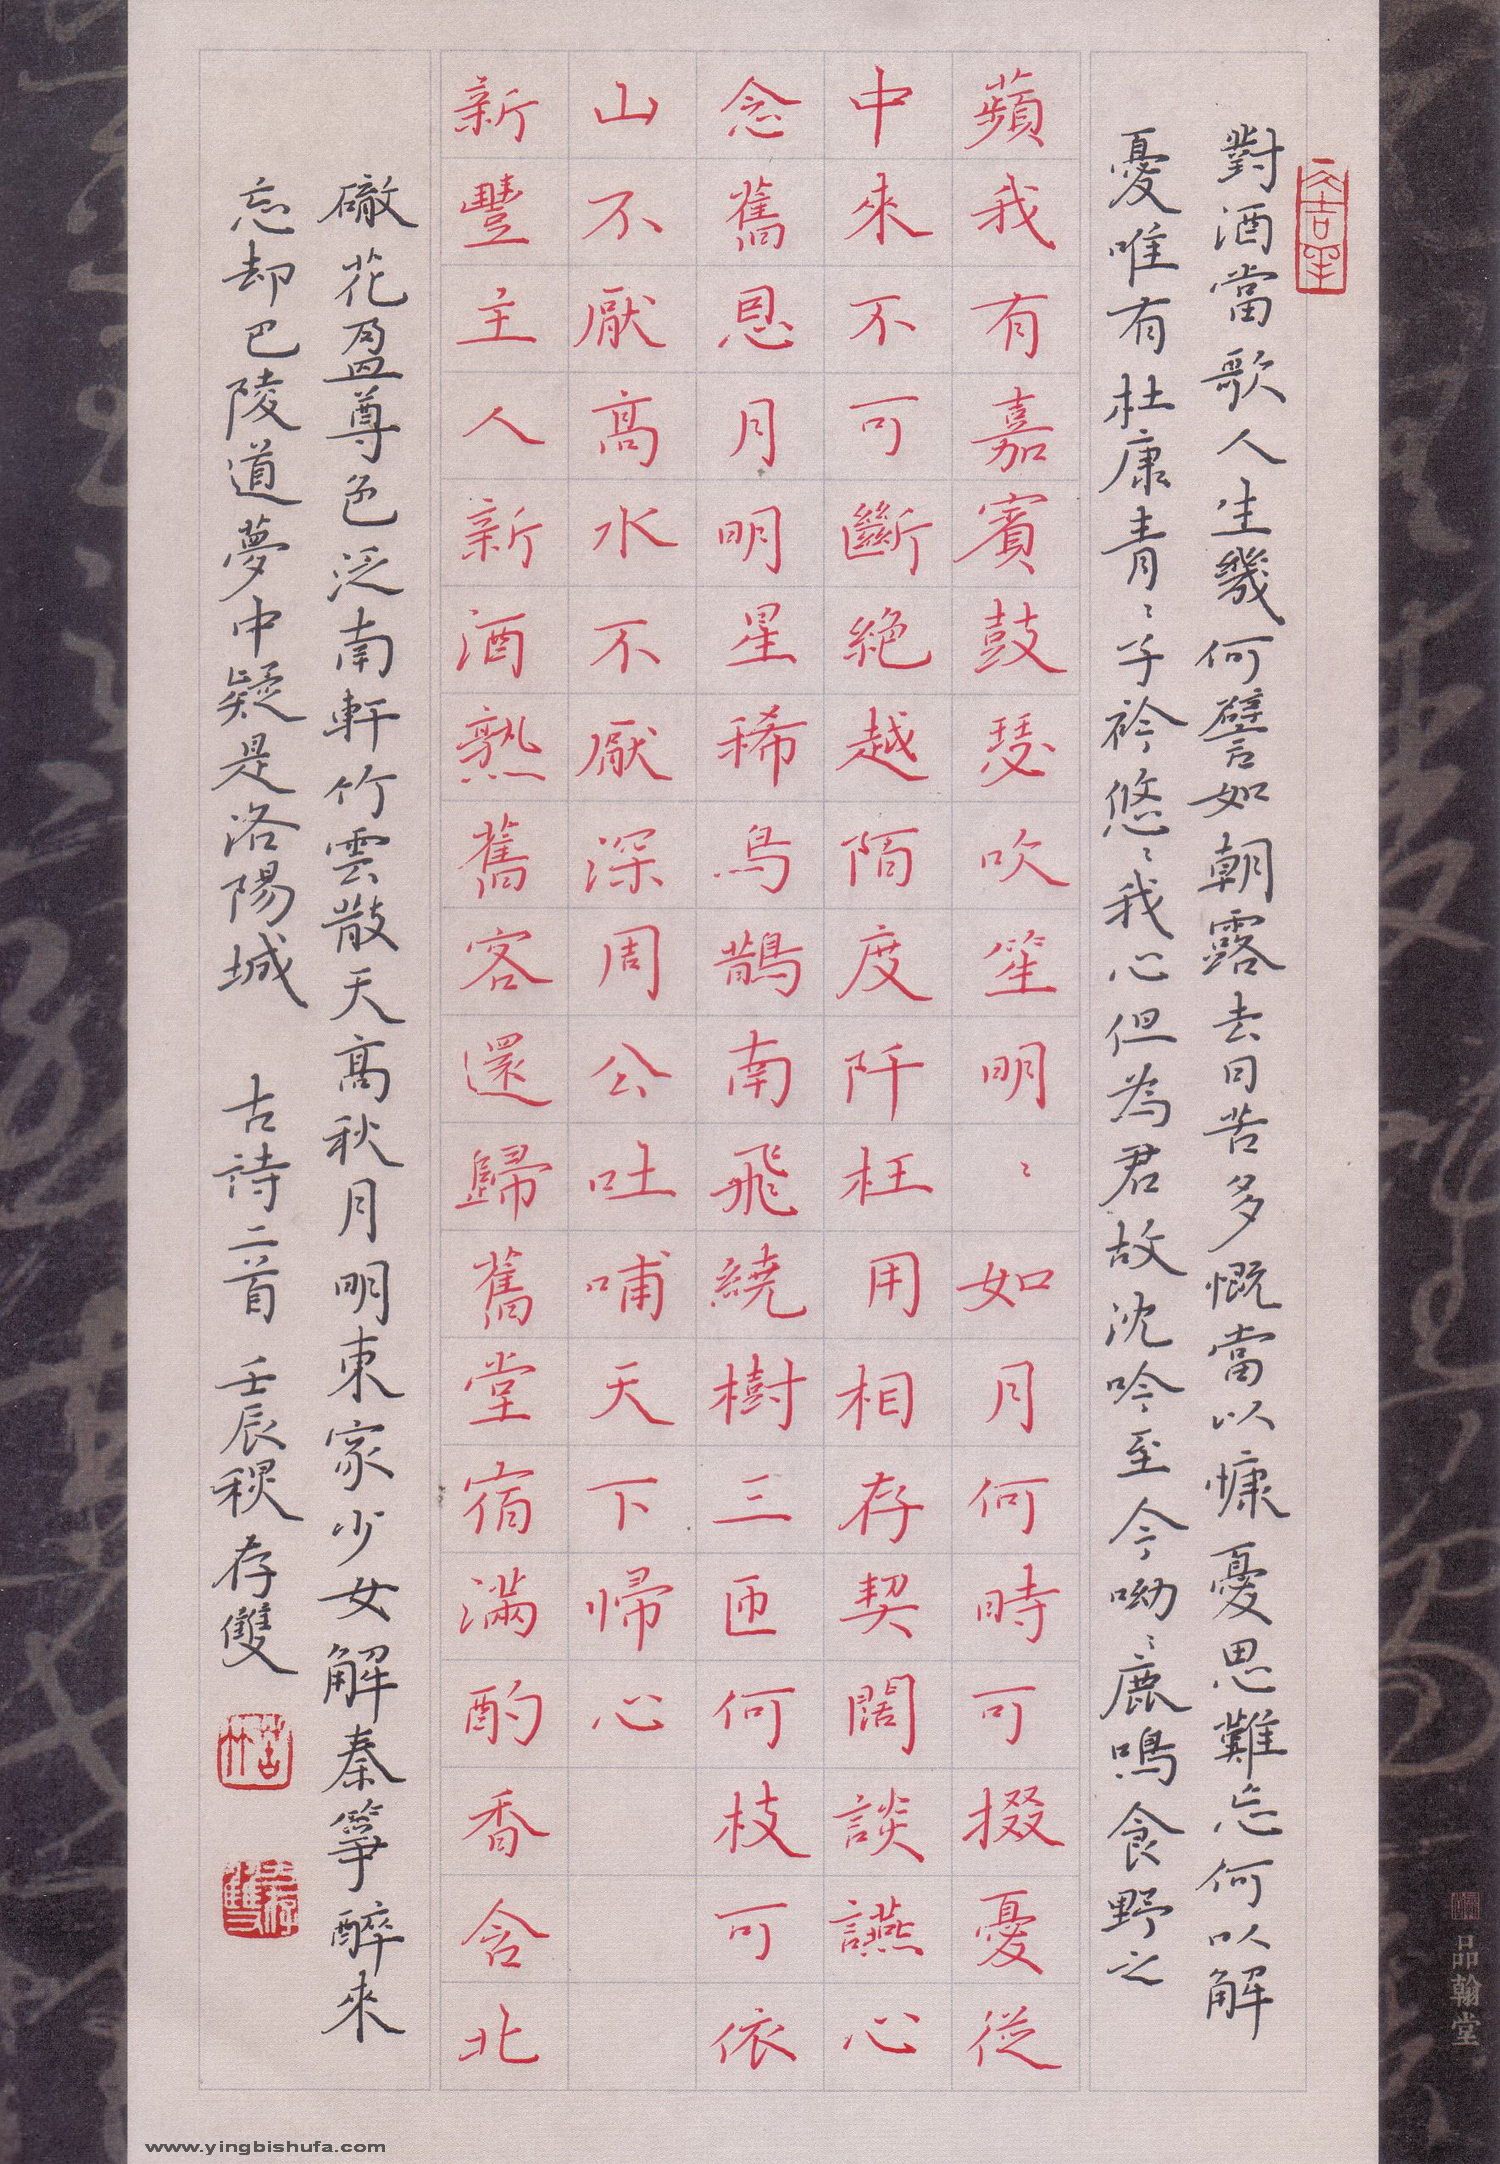 對酒當歌人生幾何譬如朝露去日苦多慨當以慷憂思難忘何以解
憂唯有杜康青〻子衿悠〻我心但為君故沈吟至今呦〻鹿鳴食野之
蘋我有嘉賓鼓瑟吹笙明〻如月何時可掇憂從
中來不可斷絕越陌度阡枉用相存契闊談讌心
念舊恩月明星稀烏鵲南飛繞樹三匝何枝可依
山不厭高水不厭深周公吐哺天下帰心
新豐主人新酒熟舊客還歸舊堂宿滿酌香含北
花盈尊色泛南軒竹雲散天高秋月明東家少女解秦箏醉來
忘却巴陵道夢中疑是洛陽城 古詩二首 壬辰 存雙
品翰堂
www.yingbishufa.com